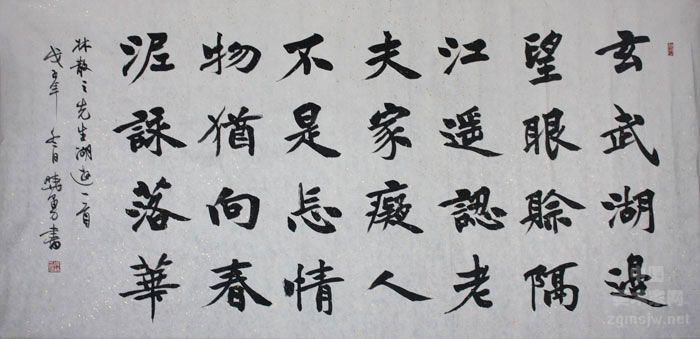 玄武湖邊
望眼賒隔
江遥認老
夫家癡人
不是忘情
物猶向春
泥誄落華
林散之先生湖遊一首
戊子年冬日驍勇書
zgmsjw.net